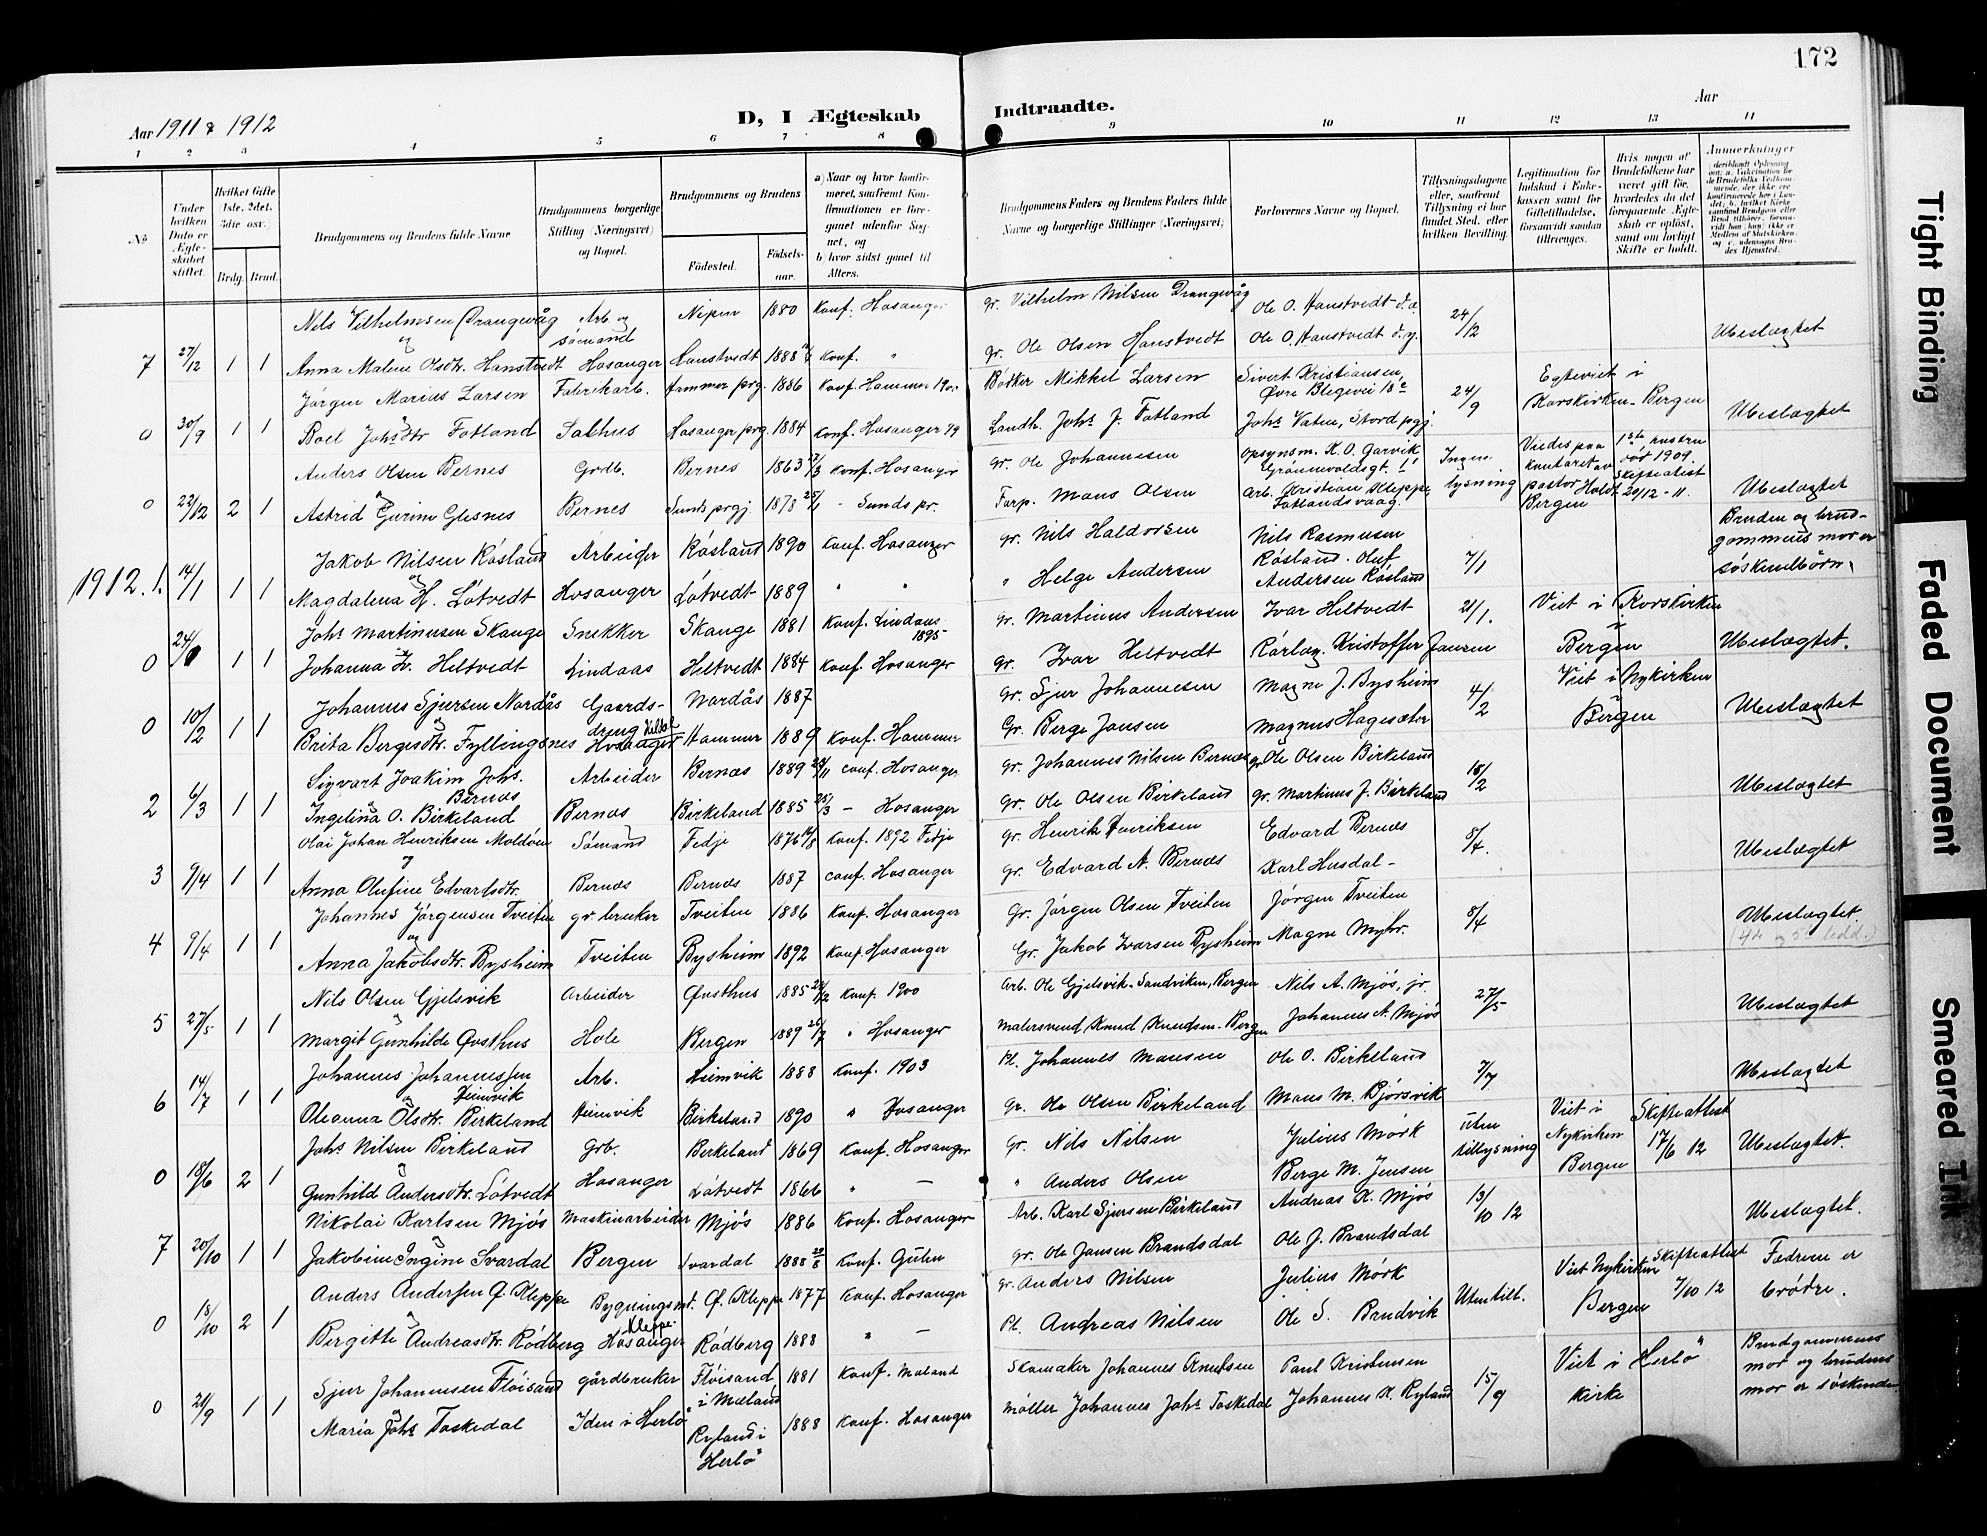 172
Aar 1911 & 1912
D, I Ægteskab Indtraadte.
Aar
1 2 3 4 5 6 7 8 9 10 11 12 13 14
№
Under hvilken Dato er Ægteskabet stiftet.
Hvilket Gifte (1ste, 2det, 3die osv.)
Brdg. Brud.
Brudgommens og Brudens fulde Navne
Brudgommens borgerlige Stilling (Næringsvei) og Bopæl.
Brudgommens og Brudens
Fødested.
Fødselsaar.
a) Naar og hvor konfirmeret, saafremt Konfirmationen er foregaaet udenfor Sognet, og
b hvor sidst gaaet til Alters.
Brudgommens Faders og Brudens Faders fulde Navne og borgerlige Stillinger (Næringsvei)
Forlovernes Navne og Bopæl.
Tillysningsdagene eller, saafremt Tillysning ei har fundet Sted, efter hvilken Bevilling.
Legitimation for Indskud i Enkekassen samt for Giftetilladelse, forsaavidt saadan tiltrænges.
Hvis nogen af Brudefolkene har været gift før, hvorledes da det foregaaende Ægteskab er opløst, samt om lovligt Skifte er holdt.
Anmerkninger
Nils Vilhelmsen Drangevåg Arb. og sømand Nipen 1880 Konf. Hosanger gr. Vilhelm Nilsen Drangevåg Ole O. Hanstvedt d.æ.
og
7 27/12 1 1 Anna Malene Olsdtr. Hanstvedt Hosanger Hanstvedt 1888 Konf. " gr. Ole Olsen Hanstvedt Ole O. Hanstvedt d.y. 24/12 Ubeslægtet
Jørgen Marius Larsen Fabrikarb. Hammer prg. 1886 Konf. Hammer Bødker Mikkel Larsen Sivert Kristiansen, Øvre Blegevei 18 Egteviet i
0 30/9 1 1 Roel Johsdtr Fotland Salhus Hosanger prg. 1884 Konf. Hosanger 99 Landh. Johs J. Fotland Johs Vaten, Stord prgj. 24/9 Korskirken - Bergen Ubeslægtet
Anders Olsen Bernes Grdb. Bernes 1863 Konf. Hosanger gr. Ole Johannesen opsynsm. K. O. Garvik Ingen lysning Viedes paa kontoret av pastor Holdt Bergen 1ste hustru død 1909. Skifteattest 20/12 - 11.
0 22/12 2 1 Astrid Gurine Glesnes Bernes Sunds prgj. 1878 - Sunds pr. Farp. Mons Olsen Arb. Kristian Kleppe, Fotlandsvaag. Ubeslægtet
Jakob Nilsen Røsland Arbeider Røsland 1890 Konf. Hosanger gr. Nils Haldorsen Nils Rasmusen Røsland. Oluf Bruden og brudgommens mor er søskendbørn.
1912. 1. 14/1 1 1 Magdalena H. Løtvedt Hosanger Løtvedt 1889 " " " Helge Andersen Andersen Røsland 7/1
Johs Martinusen Skauge Snekker Skauge 1881 Konf. Lindaas 1895 gr. Martinus Andersen Ivar Heltvedt 21/1. Viet i Korskirken
0 24/ 1 1 Johanna Iv. Heltvedt Lindaas Heltvedt 1884 Konf. Hosanger gr. Ivar Heltvedt Kristoffer Jansen Bergen Ubeslægtet.
Johannes Sjursen Nordås Gaardsdreng Nordås 1887 gr. Sjur Johannesen Magne J. Bysheim Viet i Nykirken
0 10/2 1 1 Brita Bergesdtr. Fyllingsnes Hosanger Hammer 1889 Konf. Hammer Gr. Berge Jansen Magnus Hagesæter 4/2 Bergen Ubeslægtet
Sigvart Joakim Johs. Bernæs Arbeider Bernæs 1889 conf. Hosanger gr. Johannes Nilsen Bernæs gr. Ole Olsen Birkeland
2 6/3 1 1 Ingelina O. Birkeland Bernæs Birkeland 1885 25/3 - Hosanger gr. Ole Olsen Birkeland gr. Martinus J. Birkeland 18/2 Ubeslægtet
Olai Johan Henriksen Moldøen Sømand Fedje 1876 Konf. 1892 Fedje gr. Henrik Henriksen Edvard Bernæs
og
3 9/4 1 1 Anna Olufine Edvardsdtr. Bernæs Bernæs 1887 conf. Hosanger gr. Edvard A. Bernæs Karl Husdal - 8/4. Ubeslægtet
Johannes Jørgensen Tveiten gr. bruker Tveiten 1886 Konf. Hosanger Gr. Jørgen Olsen Tveiten Jørgen Tveiten
og
4 9/4 1 1 Anna Jakobsdtr. Bysheim Tveiten Bysheim 1892 Konf. Hosanger Gr. Jakob Ivarsen Bysheim Magne Myhr. 8/4 Ubeslægtet.
(4de og 5te ledd.)
Nils Olsen Gjelsvik Arbeider Øvsthus 1885 Konf. 1900 Arb. Ole Gjelsvik - Sandviken, Bergen Nils A. Mjøs, jr.
5 27/5 1 1 Margit Gunhilde Øvsthus Hole Bergen 1889 " Hosanger Malersvend Knud Knudsen - Bergen Johannes A. Mjøs 27/5 Ubeslægtet
Johannes Johannessen Heimvik Arb. Heimvik 1888 Konf. 1903 Pl. Johannes Monsen Ole O. Birkeland
og
6 14/7 1 1 Oleanna Olsdtr. Birkeland Heimvik Birkeland 1890 " Hosanger Gr. Ole Olsen Birkeland Mons M. Bjørsvik 7/7 Ubeslægtet
Johs Nilsen Birkeland Grb. Birkeland 1869 Konf. Hosanger Gr. Nils Nilsen Julius Mørk uten tillysning Viet i Nykirken Bergen Skifteattest 17/6 12
0 18/6 2 1 Gunhild Andersdtr. Løtvedt Hosanger Løtvedt 1866 " — " Anders Olsen Berge M. Jensen Ubeslægtet.
Nikolai Karlsen Mjøs Maskinarbeider Mjøs 1886 Konf. Hosanger Arb. Karl Sjursen Birkeland Andreas K. Mjøs 13/10 12
7 20/10 1 1 Jakobine Ingine Svardal Bergen Svardal 1888 Konf. Gulen gr. Ole Jansen Brandsdal Ole J. Brandsdal Ubeslægtet.
Anders Andersen Ø. Kleppe Bygningsm. Ø. Kleppe 1877 Konf. Hosanger Gr. Anders Nilsen Julius Mørk Uten till. Viet Nykirken Bergen Skifteattest 7/10 12 Fedrene er brødre.
0 13/10 2 1 Bergitte Andreasdtr. Rødberg Kleppe Hosanger Rødberg 1888 " — Pl. Andreas Nilsen Ole S. Brudvik
Sjur Johannesen Fløisand gårdbruker Fløisand i Mæland 1881 Konf. Mæland Skomaker Johannes Knutsen Paul Kristensen Viet i Herlø kirke Brudgommens mor og brudens mor er søskende
0 21/9 1 1 Maria Johs Toskedal Iden i Herlø Ryland i Herlø 1888 Konf. Hosanger Møller Johannes Johs Toskedal Johannes K. Ryland 15/9
Tight Binding
Faded Document
Smeared Ink